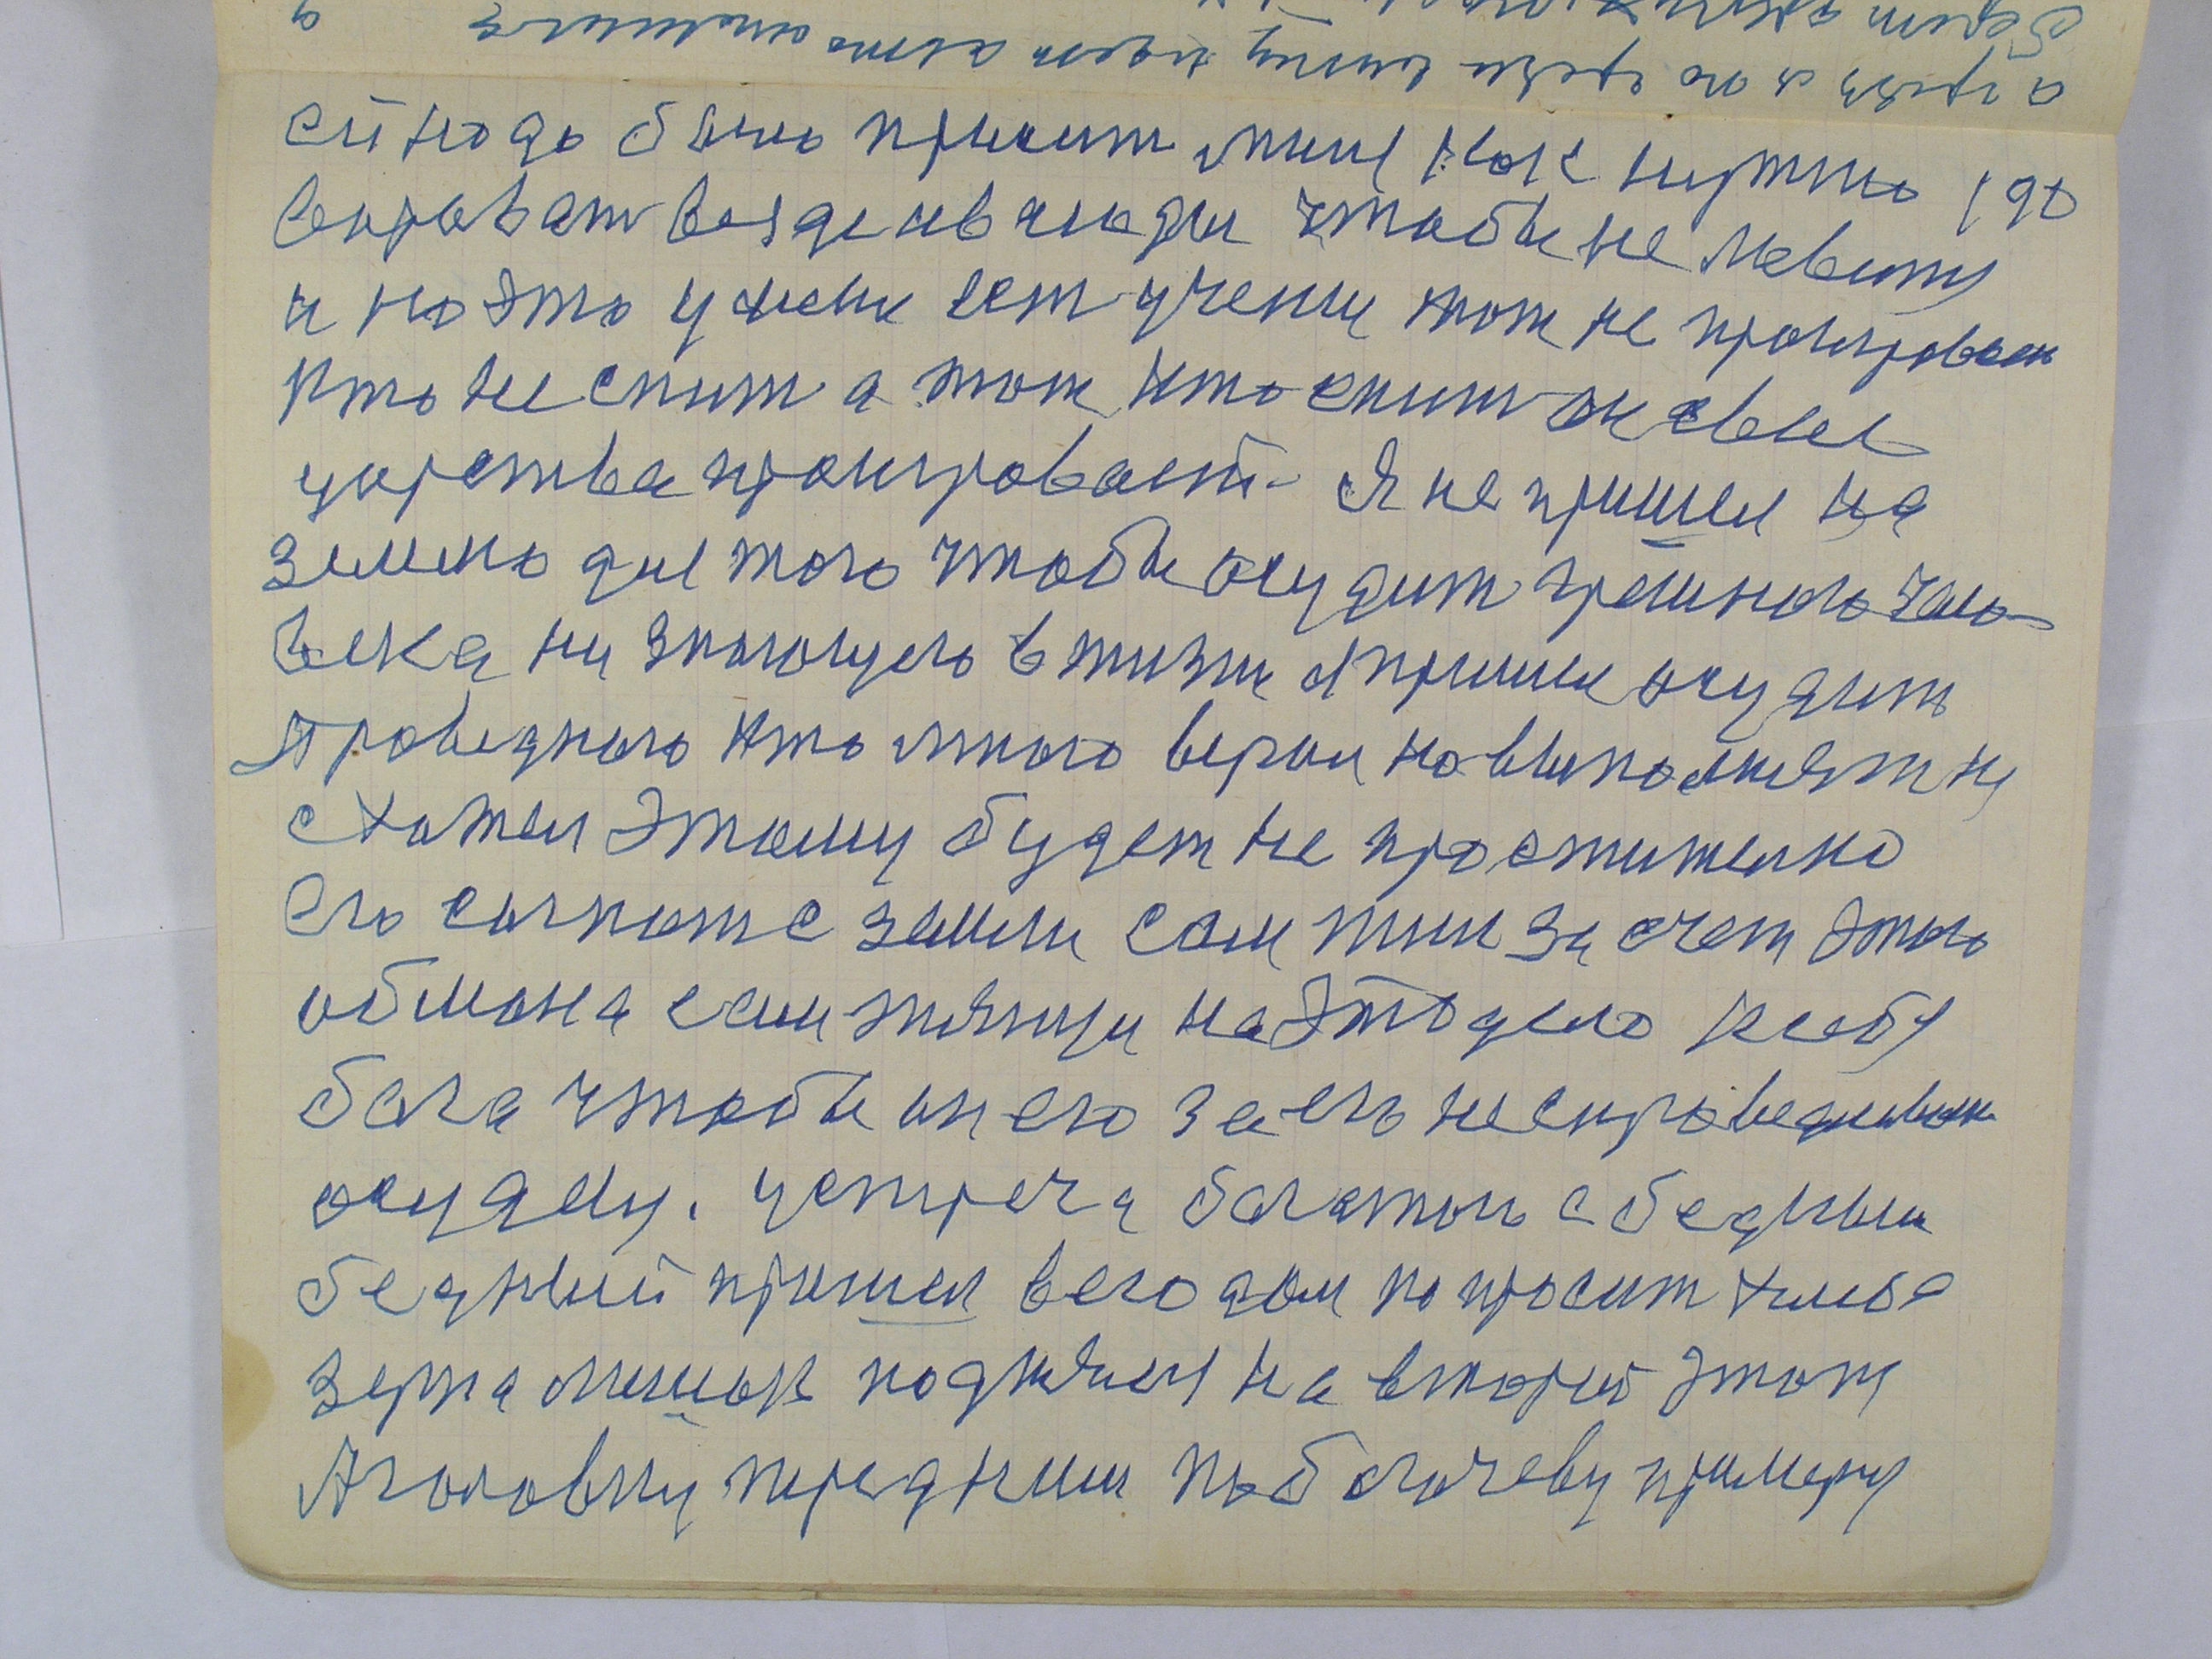 ей надо было просит мини как нужно 190
вороват везде ив люди чтобы не ловит
и на это у мене ест учении тот не проигравает
кто не спит а тот кто спит он свае
царства проигравает. Я не пришел на
землю дле того чтобы осудит грешного чело
века ни знающего в жизни я пришел осудит
праведного кто много верои но выполнят ни
схотел этому будет не простително
его согнат с земли сам жил за счет этого
обмона если тяници на это дело к себу
бога чтобы он его за его несправедливои
осуду. устреча богатого с бедным
бедный пришел в его дом попросит хлеба
зерна мешок поднял на вторий этаж
А головну перед ним по богачеву примеру